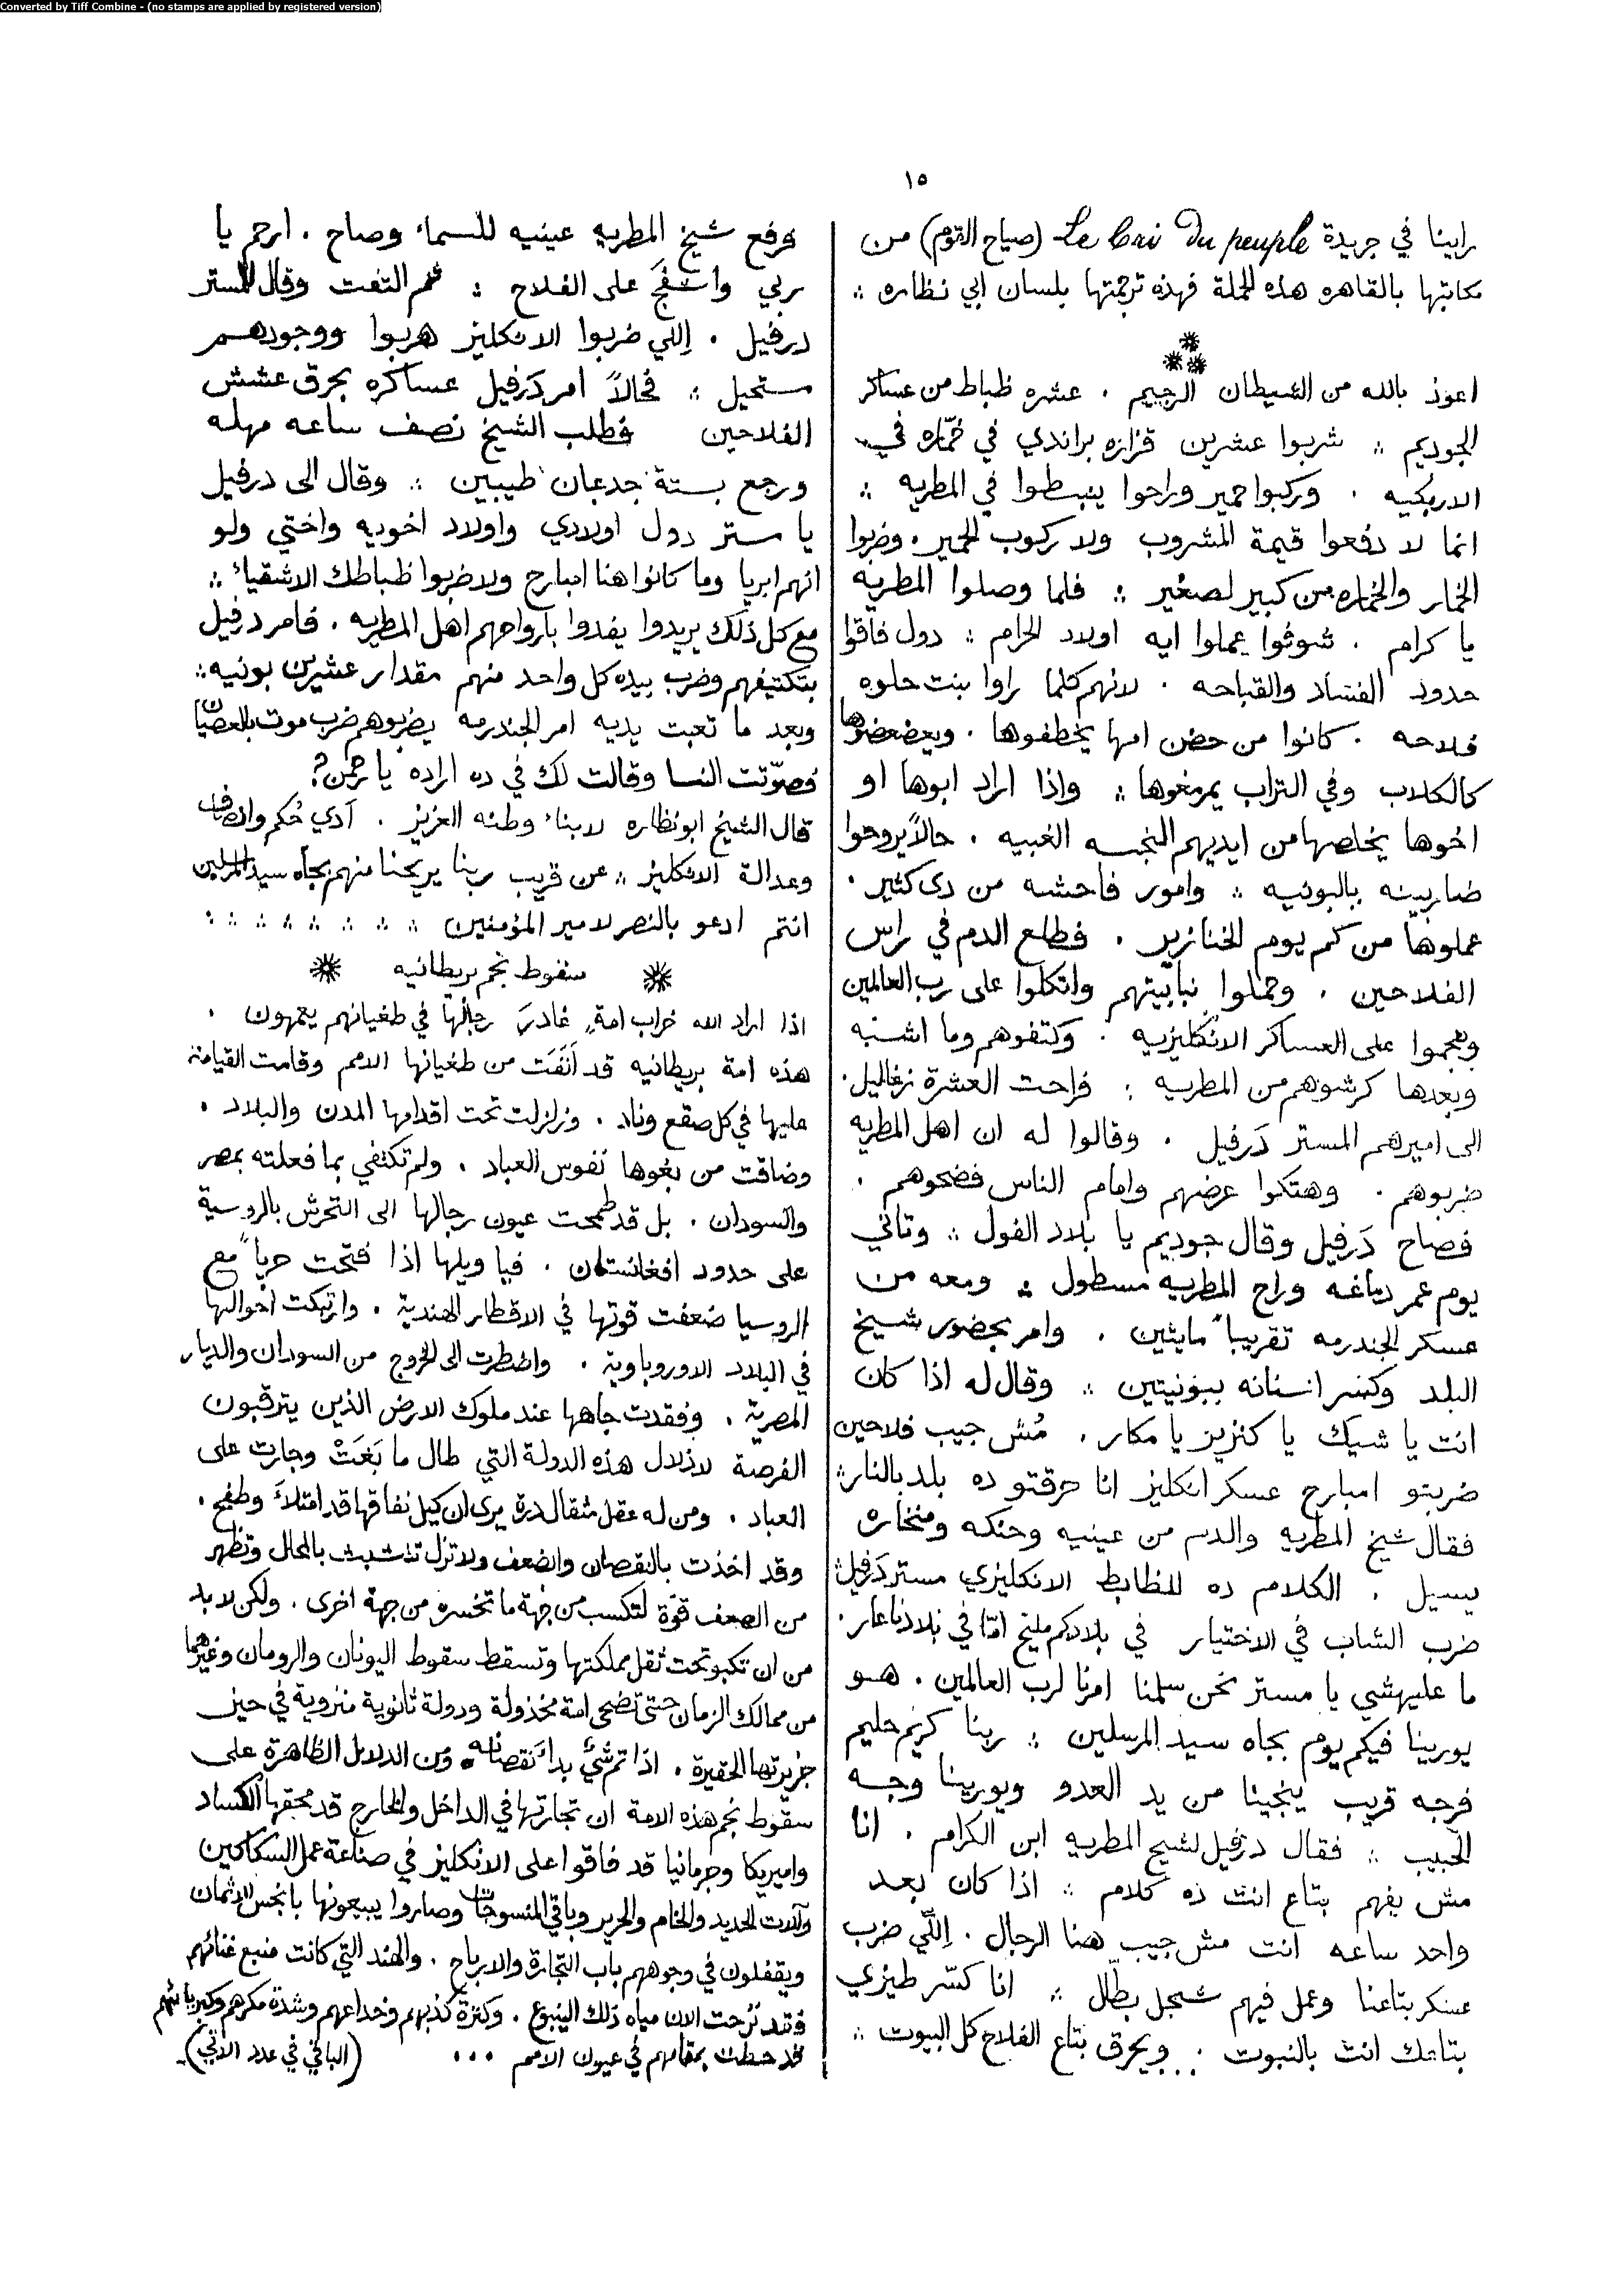 Converted by Tiff Combine - (no stamps are applied by registered version)
١٥
راينا في جريدة Le Cri Du peuple (صياح القوم) من
مكاتبها بالقاهره هذه الجملة فهذه ترجمتها بلسان ابي نظاره ∴
اعوذ بالله من الشيطان الرجيم ٠ عشره ظباط من عساكر
الجوديم ∴ شربوا عشرين قزازه براندي في خمّاره في
الازبكيه ٠ وركبوا حمير وراحوا ينبسطوا في المطريه ∴
انما لا دفعوا قيمة المشروب ولا ركوب الحمير ٠ وضربوا
الخمار والخماره من كبير لصغير ∴ فلما وصلوا المطريه
يا كرام ٠ شوفوا عملوا ايه اولاد الحرام ∴ دول فاقوا
حدود الفساد والقباحه ٠ لانهم كلما راوا بنت حلوه
فلاحه ٠ كانوا من حضن امها يخطفوها ٠ وبعض عضوها
كالكلاب وفي التراب يمرمغوها ∴ واذا اراد ابوها او
اخوها يخلصها من ايديهم النجسه الغبيه ٠ حالاً يروحوا
ضاربينه بالبونيه ∴ وامور فاحشه من دى كثير ٠
عملوها من كم يوم الخنازير ٠ فطلع الدم في راس
الفلاحين ٠ وحملوا نبابيتهم واتكلوا على رب العالمين
وهجموا على العساكر الانكليزيه ٠ وكتفوهم وما اشبه
وبعدها كرشوهم من المطريه ∴ فراحت العشرة زغاليل ٠
الى اميرهم المستر دَرفيل ٠ وقالوا له ان اهل المطريه
ضربوهم ٠ وهتكوا عرضهم وامام الناس فضحوهم ٠
فصاح دَرفيل وقال جوديم يا بلاد الفول ∴ وتاني
يوم عمر دماغه وراح المطريه مسطول ∴ ومعه من
عسكر الجندرمه تقريباً مايتين ٠ وامر بحضور شيخ
البلد وكسر اسنانه ببونيتين ∴ وقال له اذا كان
انت يا شيك يا كنزير يا مكار ٠ مُش جيب فلاحين
ضربتو امبارح عسكر انكليز انا حرقتو ده بلد بالنار ∴
فقال شيخ المطريه والدم من عينيه وحنكه ومنخاره
يسيل ٠ الكلام ده للظابط الانكليزي مستر دَرفيل ∴
ضرب الشاب في الاختيار في بلادكم مليح امّا في بلادنا عار ٠
ما عليهشي يا مستر نحن سلمنا امرنا لرب العالمين ٠ هو
يورينا فيكم يوم بجاه سيد المرسلين ∴ ربنا كريم حليم
فرجه قريب ينجينا من يد العدو ويورينا وجه
الحبيب ∴ فقال درفيل لشيخ المطريه ابن الكرام ٠ انا
مش يفهم بتاع انت ده كلام ∴ اذا كان بعد
واحد ساعه انت مش جيب هنا الرجال ٠ اِللّي ضرب
عسكر بتاعنا وعمل فيهم شجل بطّال ∴ انا كسّر طيزي
بتاعك انت بالنبوت ٠ ويحرق بتاع الفلاح كل البيوت ∴
فرفع شيخ المطريه عينيه للسماء وصاح ٠ ارحم يا
ربي على الفلاح ∴ ثم التفت وقال للمستر
درفيل ٠ اِللي ضربوا الانكليز هربوا ووجودهم
مستحيل ∴ فحالاً امر دَرفيل عساكره بحرق عشش
الفلاحين فطلب الشيخ نصف ساعه مهله
ورجع بستة جدعان طيبين ∴ وقال الى درفيل
يا ستر دول اولادي واولاد اخويه واختي ولو
انهم ابريا وما كانوا هنا امبارح ولا ضربوا ظباطك الاشقياء ∴
مع كل ذلك يريدوا يفدوا بارواحهم اهل المطريه ٠ فامر درفيل
بتكتيفهم وضرب بيده كل واحد منهم مقدار عشرين بونيه ∴
وبعد ما تعبت يديه امر الجندرمه يضربوهم ضرب موت بالعصيان
فصوّتت النسا وقالت لك في ده اراده يا رحمن؟
قال الشيخ ابو نظاره لابناء وطنه العزيز ٠ آدي حُكم وانصاف
وعدالة الانكليز ∴ عن قريب ربنا يريحنا منهم بجاه سيد المرسلين
انتم ادعو بالنصر لامير المؤمنين ∴ ∴ ∴ ∴ ∴ ∴ ∴
سقوط نجم بريطانيه
اذا اراد الله خراب امةٍ غادرَ رجالها في طغيانهم يعمهون ٠
هذه امة بريطانيه قد اَنفَت من طغيانها الامم وقامت القيامة
عليها في كل صقع وناد ٠ وزلزلت تحت اقدامها المدن والبلاد ٠
وضاقت من بغوها نفوس العباد ٠ ولم تكتفي بما فعلته بمصر
والسودان ٠ بل قد طمحت عيون رجالها الى التحرش بالروسية
على حدود افغانستان ٠ فيا ويلها اذا فتحت حرباً مع
الروسيا ضعفت قوتها في الاقطار الهندية ٠ وارتبكت احوالها
في البلاد الاوروباوية ٠ واضطرت الى الخروج من السودان والديار
المصرية ٠ وفقدت جاهها عند ملوك الارض الذين يترقبون
الفرصة لاذلال هذه الدولة التي طال ما بَغَتْ وجارت على
العباد ٠ ومن له عقل مثقال درة يرى ان كيل نفاقها قد امتلاَ وطفح ٠
وقد اخذت بالنقصان والضعف ولا تزل تتشبث بالمحال وتظهر
من الضعف قوّة لتكسب من جهة ما تخسره من جهة اخرى ٠ ولكن لا بد
من ان تكبو تحت ثقل مملكتها وتسقط سقوط اليونان والرومان وغيرهما
من ممالك الزمان حتى تضحى امة مخذولة ودولة ثانوية منزوية في حيز
جزيرتها الحقيرة ٠ اذا تم شيٌ بداَ نقصانه ٠ ومن الدلايل الظاهرة على
سقوط نجم هذه الامة ان تجارتها في الداخل والخارج قد محقها الكساد
واميريكا وجرمانيا قد فاقوا على الانكليز في صناعة عمل السكاكين
وآلات الحديد والخام والحرير وباقي المنسوجات وصاروا يبيعونها بابخس الاثمان
ويقفلون في وجوههم باب التجارة والارباح ٠ والهند التي كانت منبع غنائهم
فقد نزحت الان مياه ذلك الينبوع ٠ وكثرة كذبهم وخداعهم وشدة مكرهم وكبريائهم
قد حطت بمقامهم في عيون الامم ٠٠٠ (الباقي في عدد الاتي)